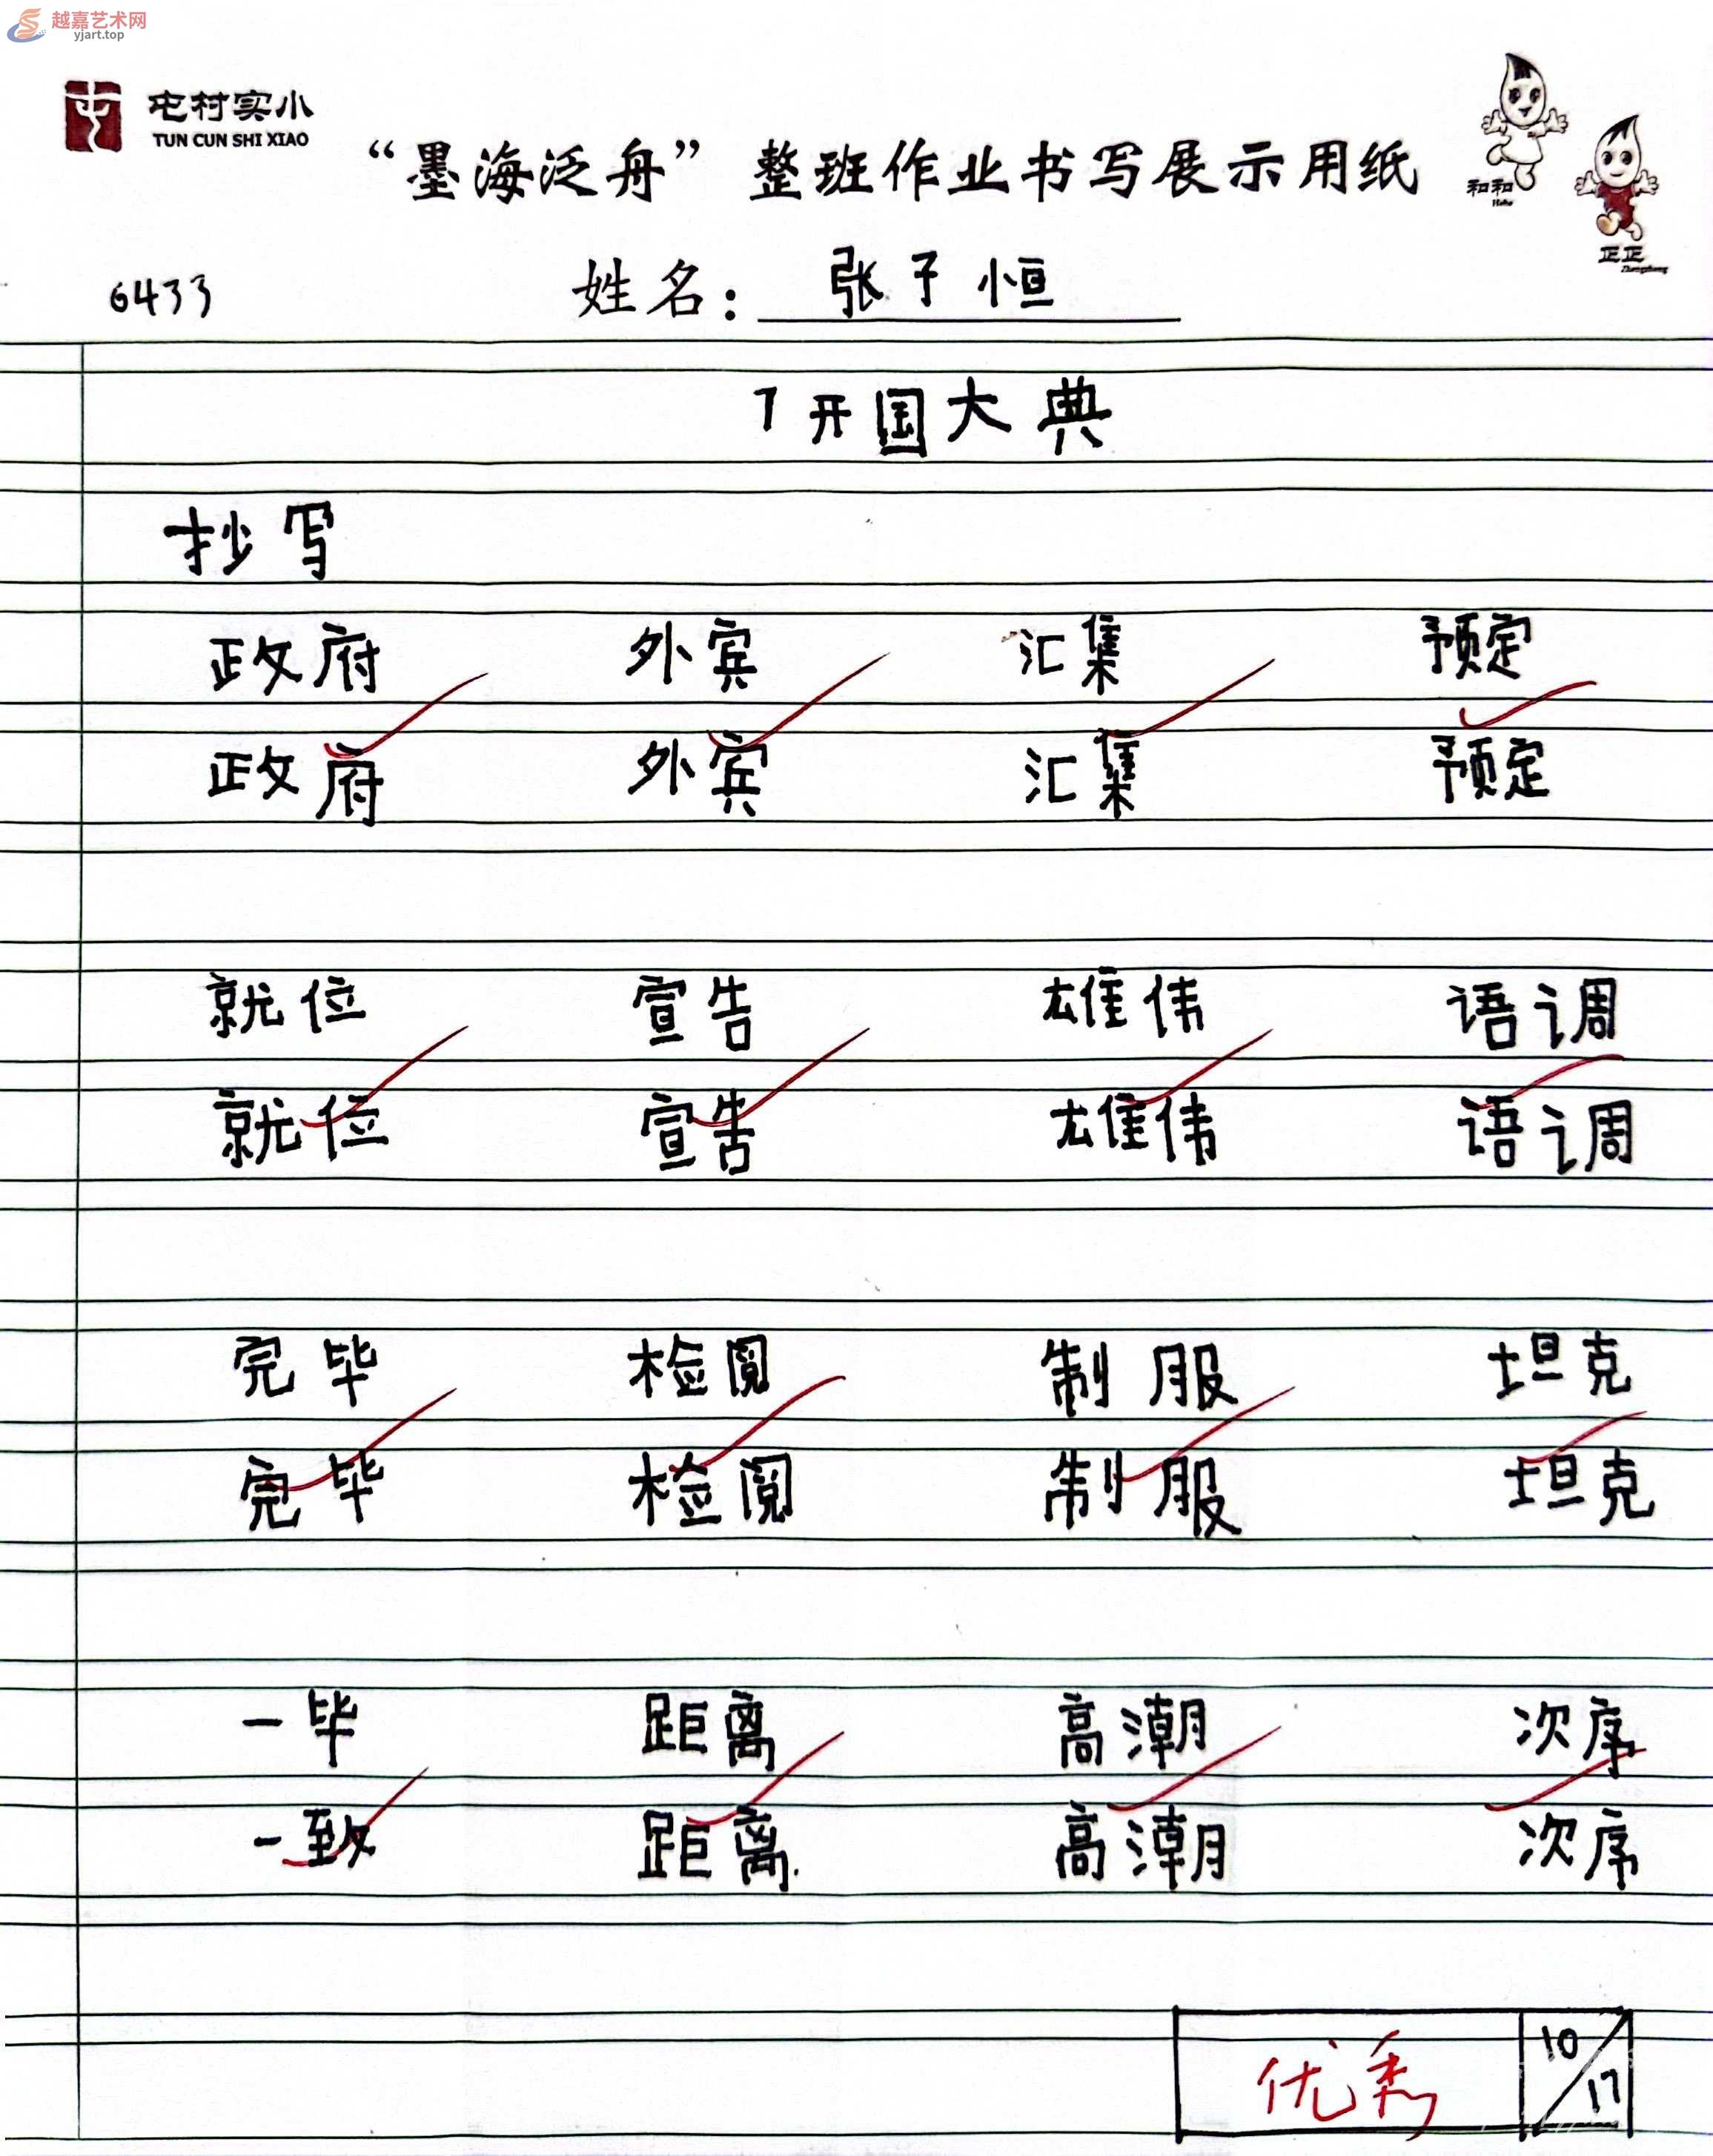 越嘉艺术网
yjart.top
屯村实小
TUN CUN SHI XIAO
“墨海泛舟” 整班作业书写展示用纸
和和
Hehe
正正
Zhengzheng
6433 姓名: 张子恒
7 开国大典
抄写
政府 外宾 汇集 预定
政府 外宾 汇集 预定
就位 宣告 雄伟 语调
就位 宣告 雄伟 语调
完毕 检阅 制服 坦克
完毕 检阅 制服 坦克
一毕 距离 高潮 次序
一致 距离 高潮 次序
优秀 10/17